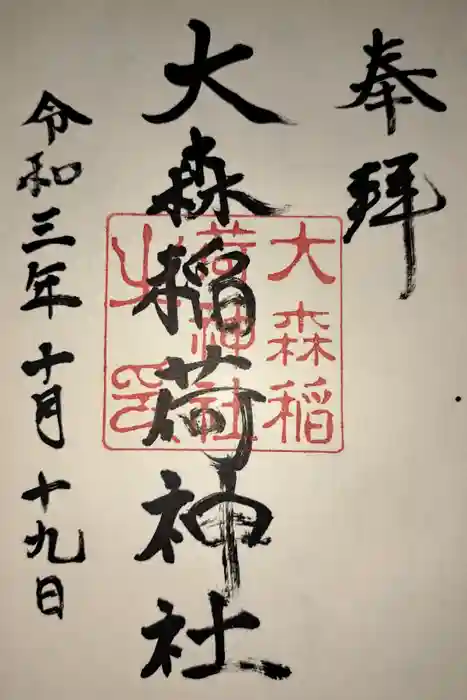 奉拝
大森稲荷神社
令和三年十月十九日
大森稲
荷神社
之印